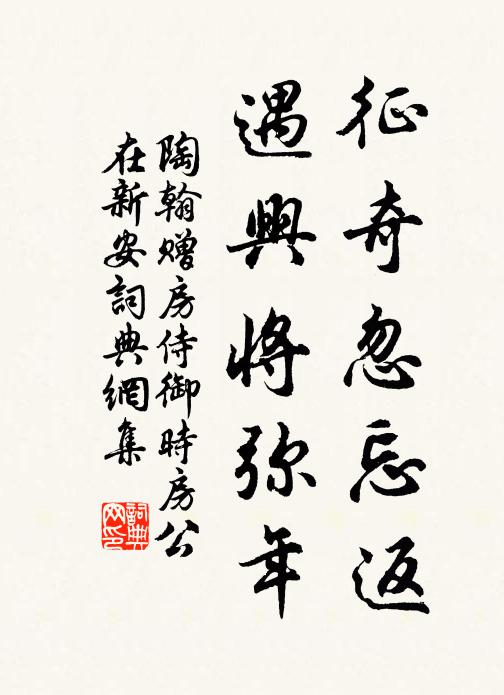 征奇忽忘返
遇興将弥年
陶翰赠房侍御時房公
在新安詞典網集
詞典
网印